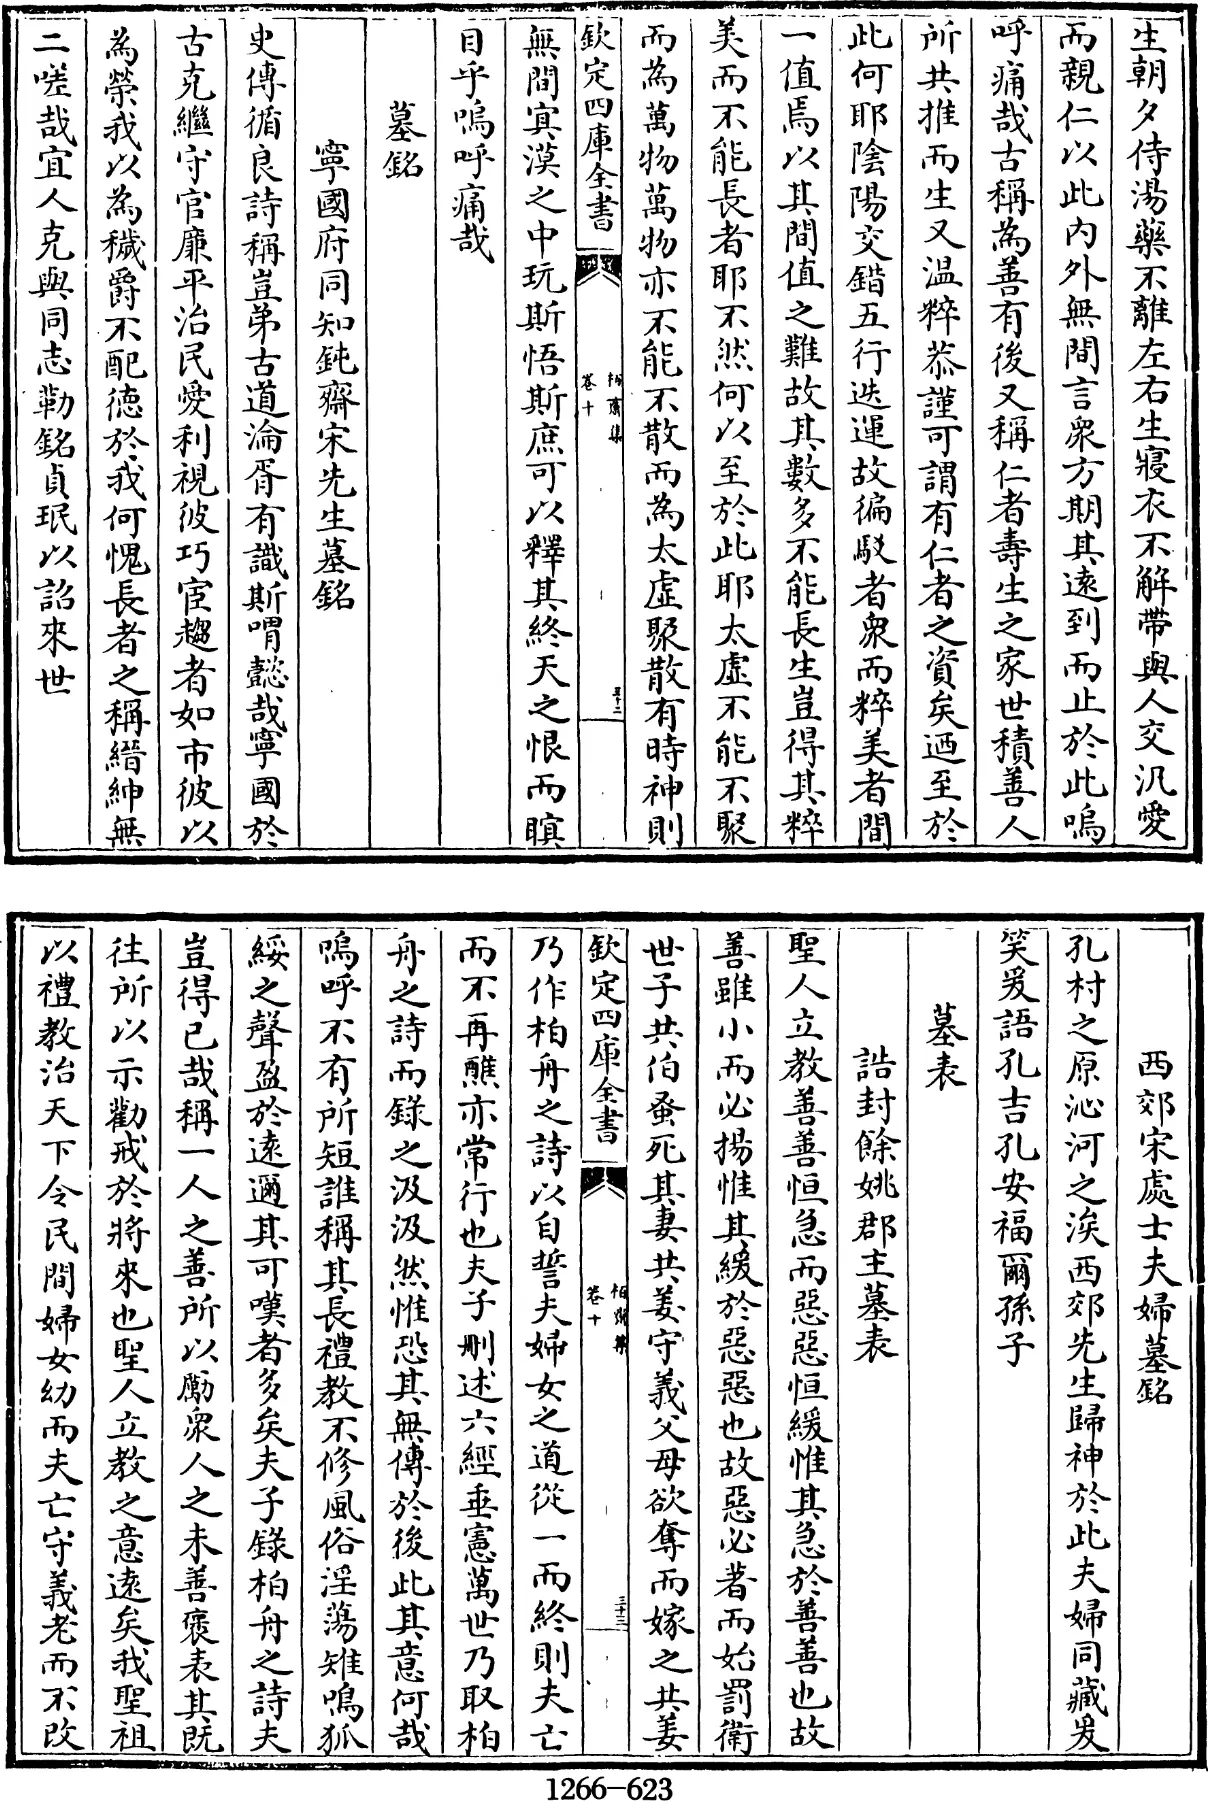 生朝夕侍湯藥不離左右生寢衣不解帶與人交汎愛
而親仁以此內外無間言衆方期其遠到而止於此嗚
呼痛哉古稱為善有後又稱仁者壽生之家世積善人
所共推而生又溫粹恭謹可謂有仁者之資矣迺至於
此何耶陰陽交錯五行迭運故徧駁者衆而粹美者間
一值焉以其間值之難故其數多不能長生豈得其粹
美而不能長者耶不然何以至於此耶太虛不能不聚
而為萬物萬物亦不能不散而為太虛聚散有時神則
欽定四庫全書
柏齋集
卷十
三十二
無間寞漠之中玩斯悟斯庶可以釋其終天之恨而瞑
目乎嗚呼痛哉
墓銘
寧國府同知鈍齋宋先生墓銘
史傳循良詩稱豈弟古道淪胥有識斯喟懿哉寧國於
古克繼守官廉平治民愛利視彼巧宦趨者如市彼以
為榮我以為穢爵不配德於我何愧長者之稱縉紳無
二嗟哉宜人克與同志勒銘貞珉以詔來世
西郊宋處士夫婦墓銘
孔村之原沁河之涘西郊先生歸神於此夫婦同藏爰
笑爰語孔吉孔安福爾孫子
墓表
誥封餘姚郡主墓表
聖人立教善善恒急而惡惡恒緩惟其急於善善也故
善雖小而必揚惟其緩於惡惡也故惡必著而始罰衛
世子共伯蚤死其妻共姜守義父母欲奪而嫁之共姜
欽定四庫全書
柏齋集
卷十
三十三
乃作柏舟之詩以自誓夫婦女之道從一而終則夫亡
而不再醮亦常行也夫子刪述六經垂憲萬世乃取柏
舟之詩而錄之汲汲然惟恐其無傳於後此其意何哉
嗚呼不有所短誰稱其長禮教不修風俗淫蕩雉鳴狐
綏之聲盈於遠邇其可嘆者多矣夫子錄柏舟之詩夫
豈得已哉稱一人之善所以勵衆人之未善褒表其既
往所以示勸戒於將來也聖人立教之意遠矣我聖祖
以禮教治天下令民間婦女幼而夫亡守義老而不改
1266—623